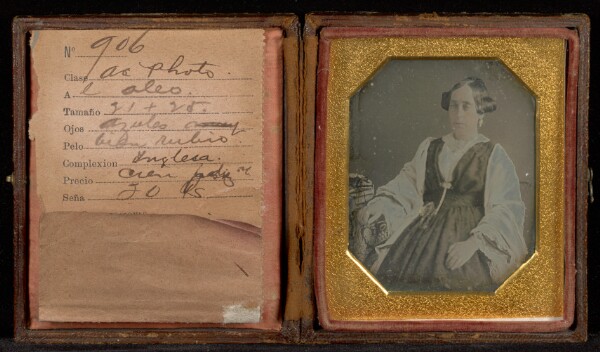 Nº 906
Clase ac photo.
A l oleo.
Tamaño 21 + 25.
Ojos azules
Pelo bien rubio
Complexion Inglesa.
Precio cien
Seña 20